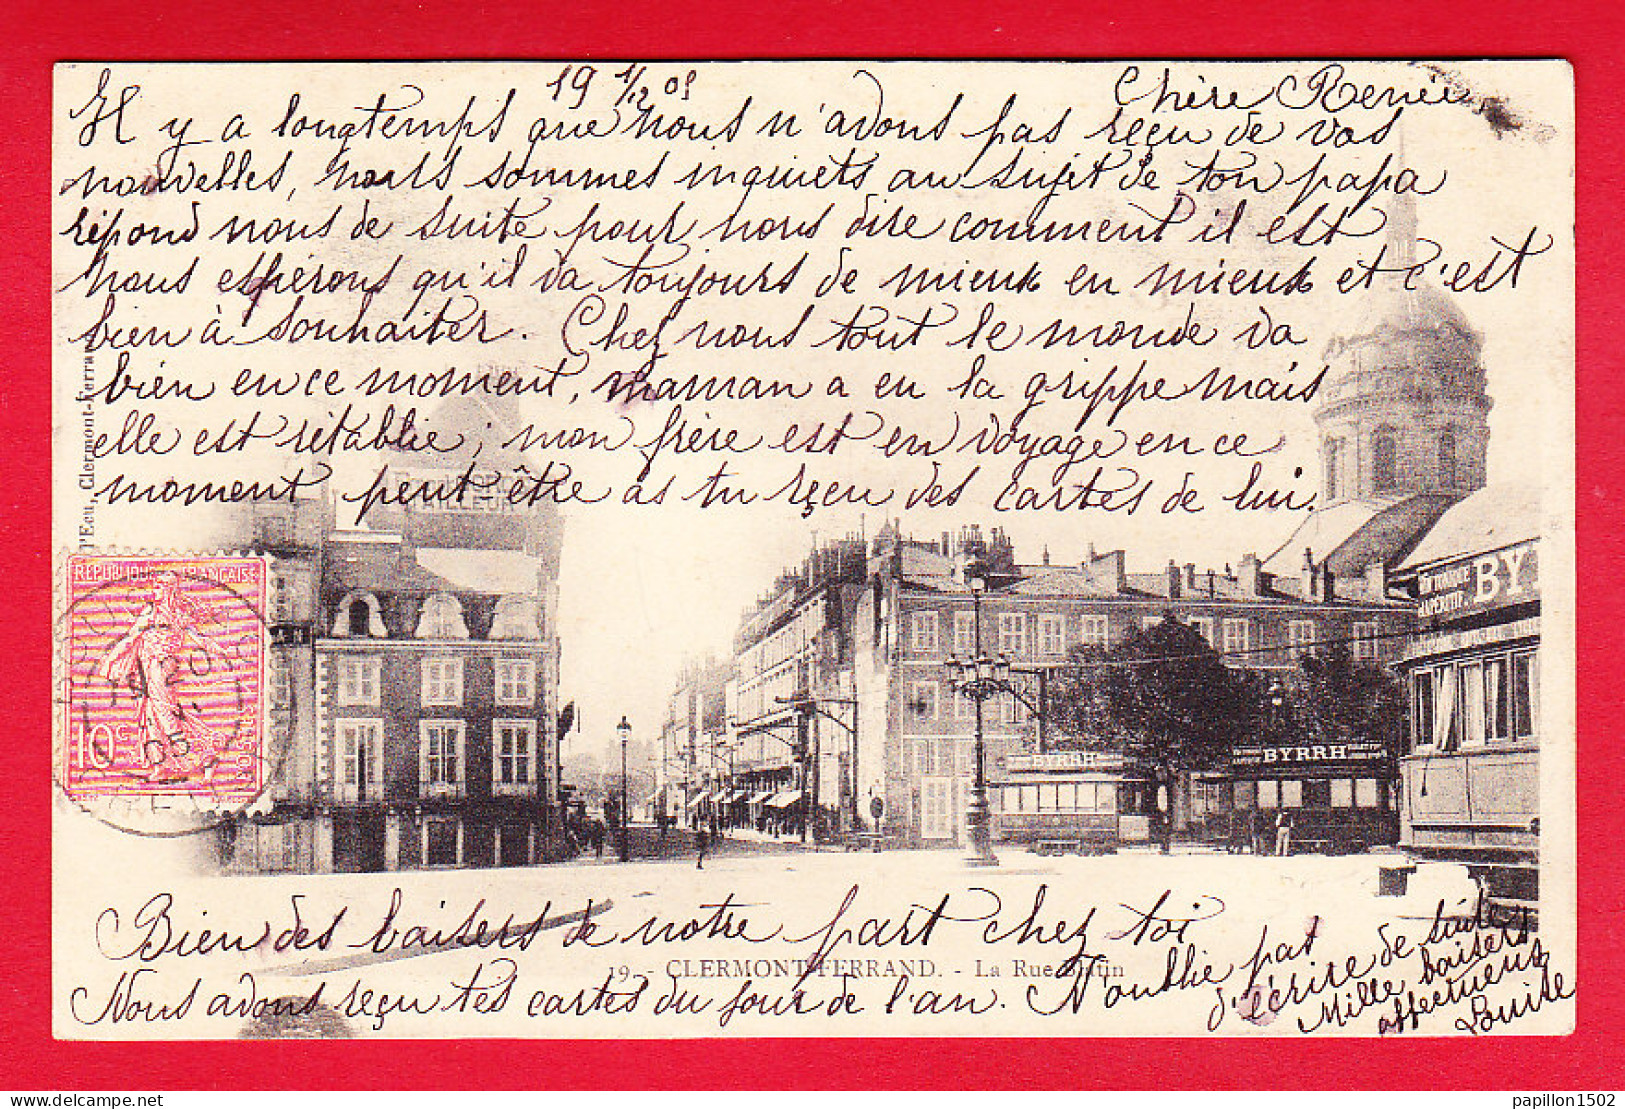 19 1/12 05
Chère Renée,
Il y a longtemps que nous n'avons pas reçu de vos
nouvelles, nous sommes inquiets au sujet de ton papa
répond nous de suite pour nous dire comment il est
nous espérons qu'il va toujours de mieux en mieux et c'est
bien à souhaiter. Chez nous tout le monde va
bien en ce moment, maman a eu la grippe mais
elle est rétablie; mon frère est en voyage en ce
moment peut-être as tu reçu des cartes de lui.
l'Ecu, Clermont-Ferrand
TAILLEUR
REPUBLIQUE FRANÇAISE
10c
POSTES
20
05
BYRRH
BYRRH
TONIQUE
APERITIF
BY
Bien des baisers de notre part chez toi
19. - CLERMONT-FERRAND. - La Rue Blatin
Nous avons reçu tes cartes du jour de l'an. N'oublie pas
d'écrire de suite
Mille baisers
affectueux
Louise
papillon1502